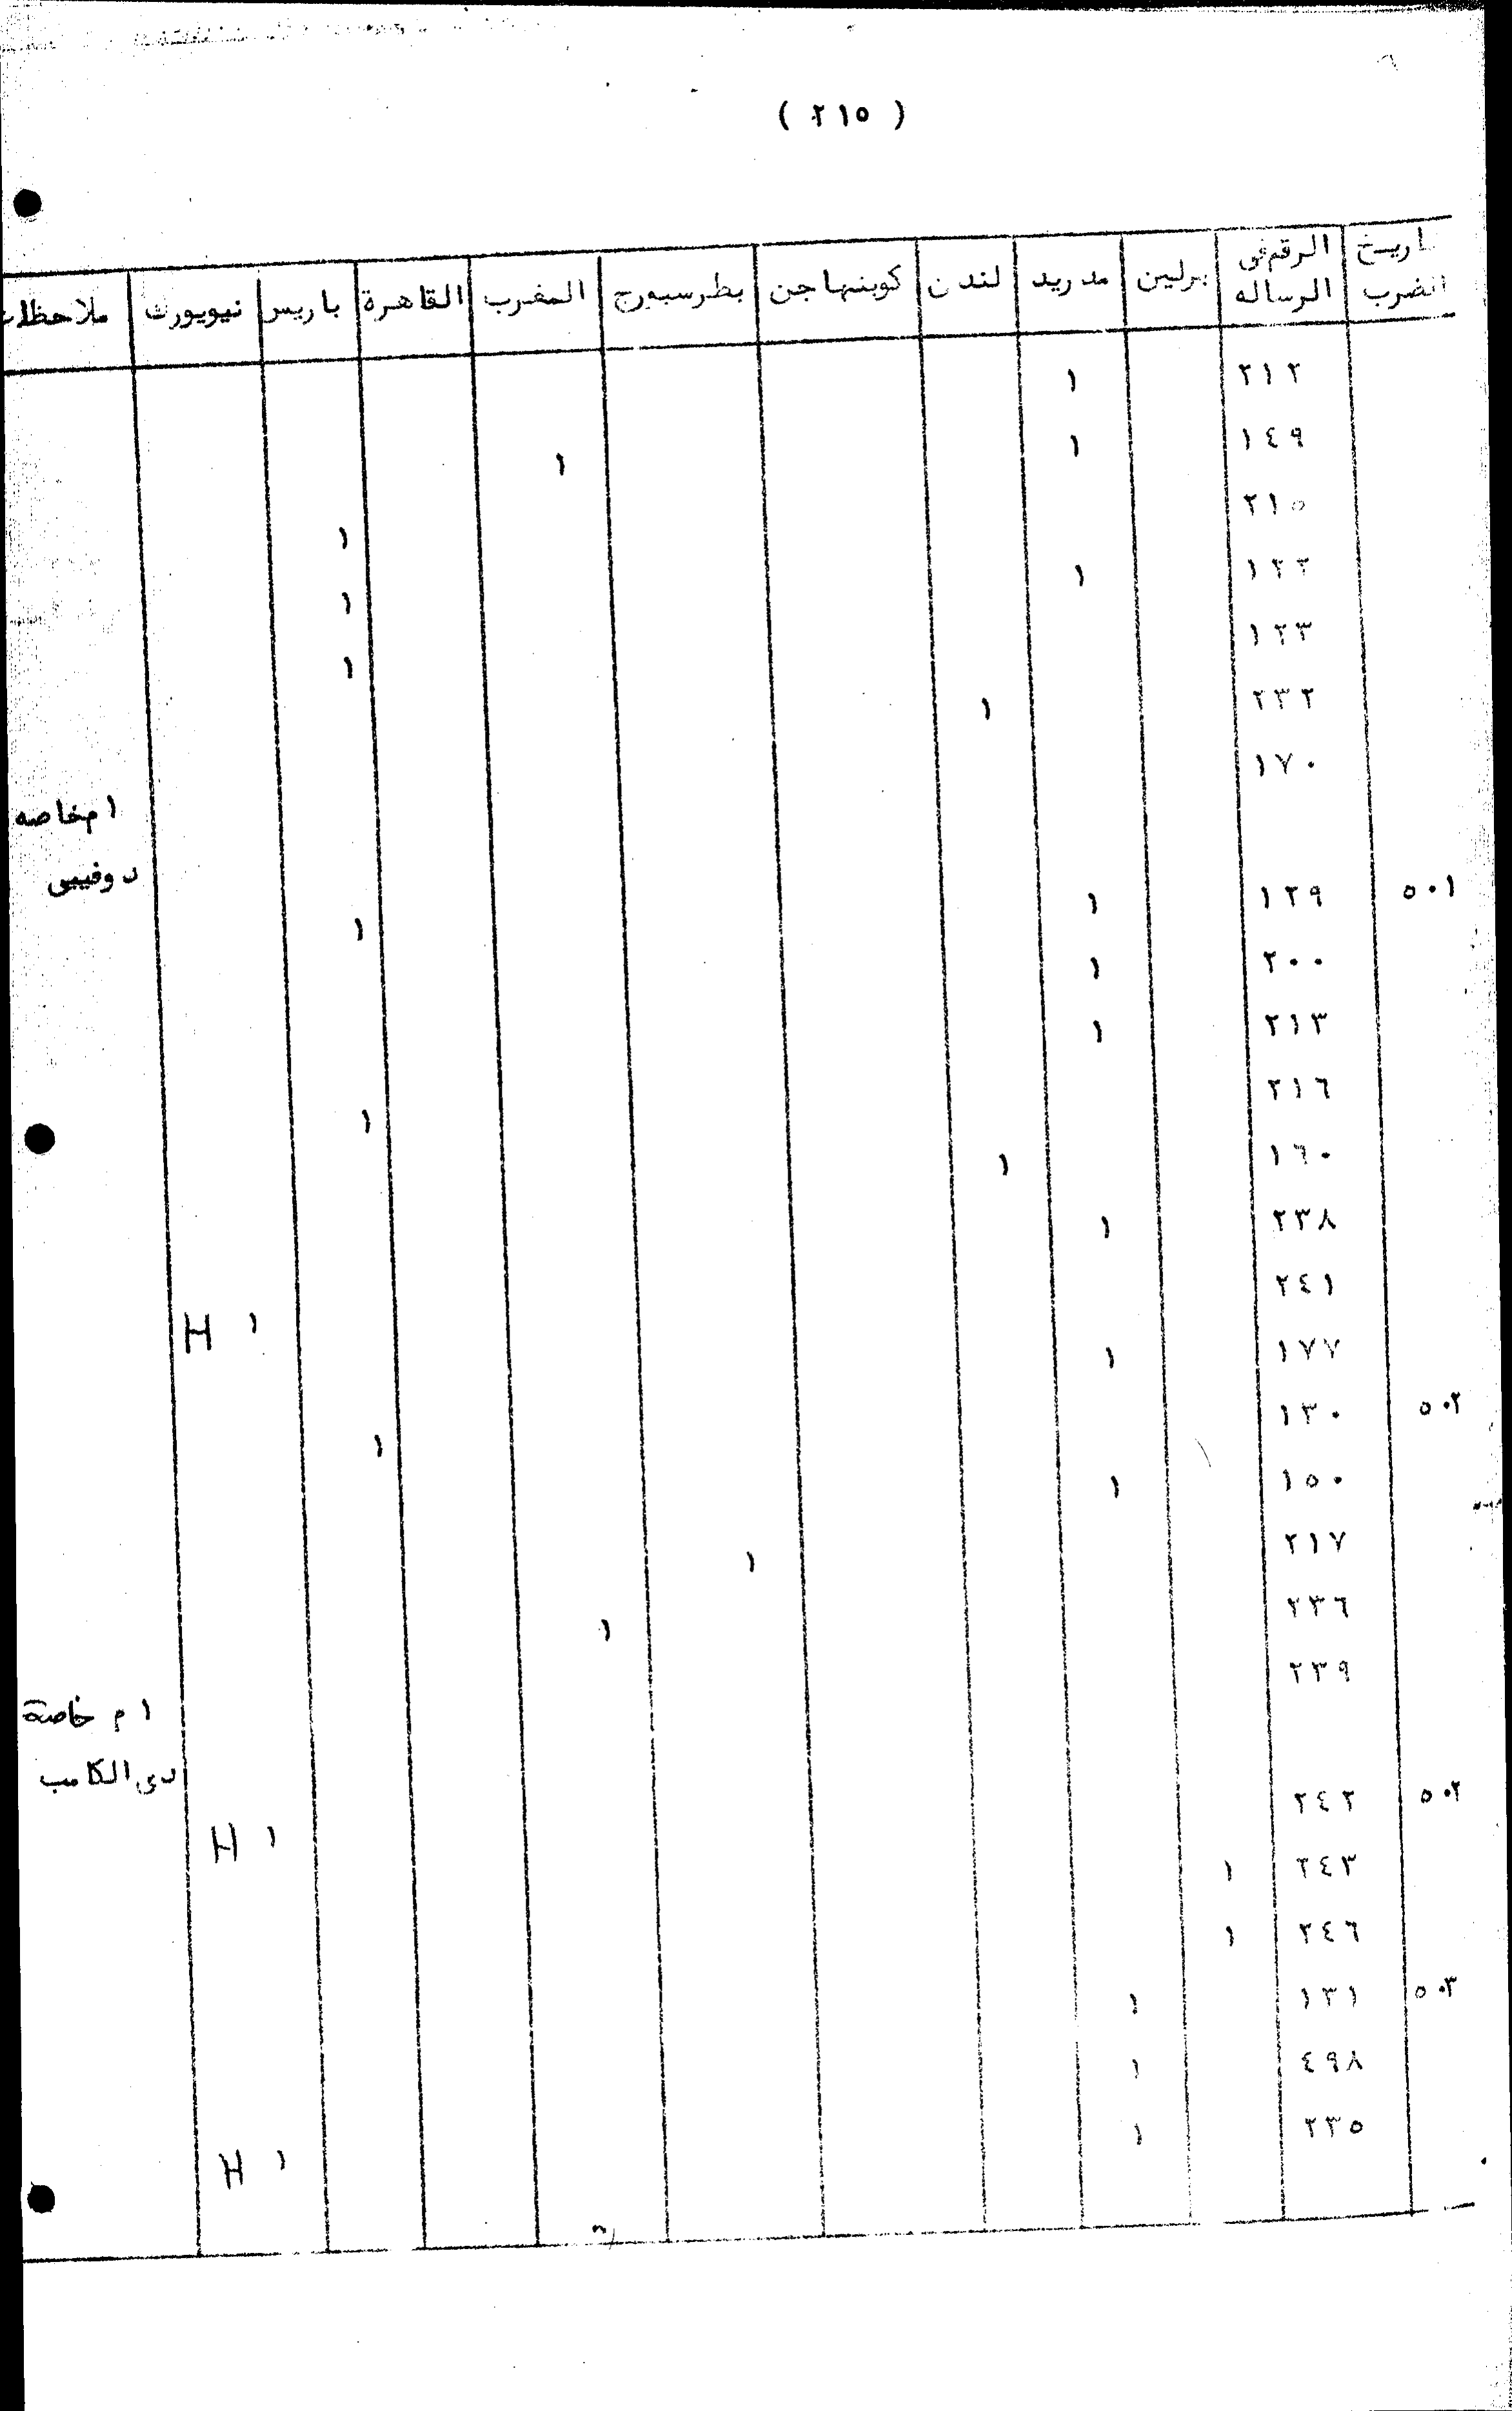 ( ٢١٥ )
تاريخ الضرب | الرقم فى الرساله | برلين | مدريد | لندن | كوبنهاجن | بطرسبورج | المغرب | القاهرة | باريس | نيويورك | ملاحظات
٢١٢ ١
١٤٩ ١ ١
٢١٥ ١
١٢٢ ١ ١
١٢٣ ١
٢٣٢ ١
١٧٠ ١ م خاصه
دوفيیى
٥٠١ ١٢٩ ١ ١
٢٠٠ ١
٢١٣ ١
٢١٦ ١
١٦٠ ١
٢٣٨ ١
٢٤١ ١ H
١٧٧ ١
٥٠٢ ١٣٠ ١
١٥٠ ١
٢١٧ ١
٢٣٦ ١
٢٣٩ ١ م خاصة
دى الكامب
٥٠٢ ٢٤٢ ١ H
٢٤٣ ١
٢٤٦ ١
٥٠٣ ١٣١ ١
٤٩٨ ١
٢٣٥ ١ ١ H